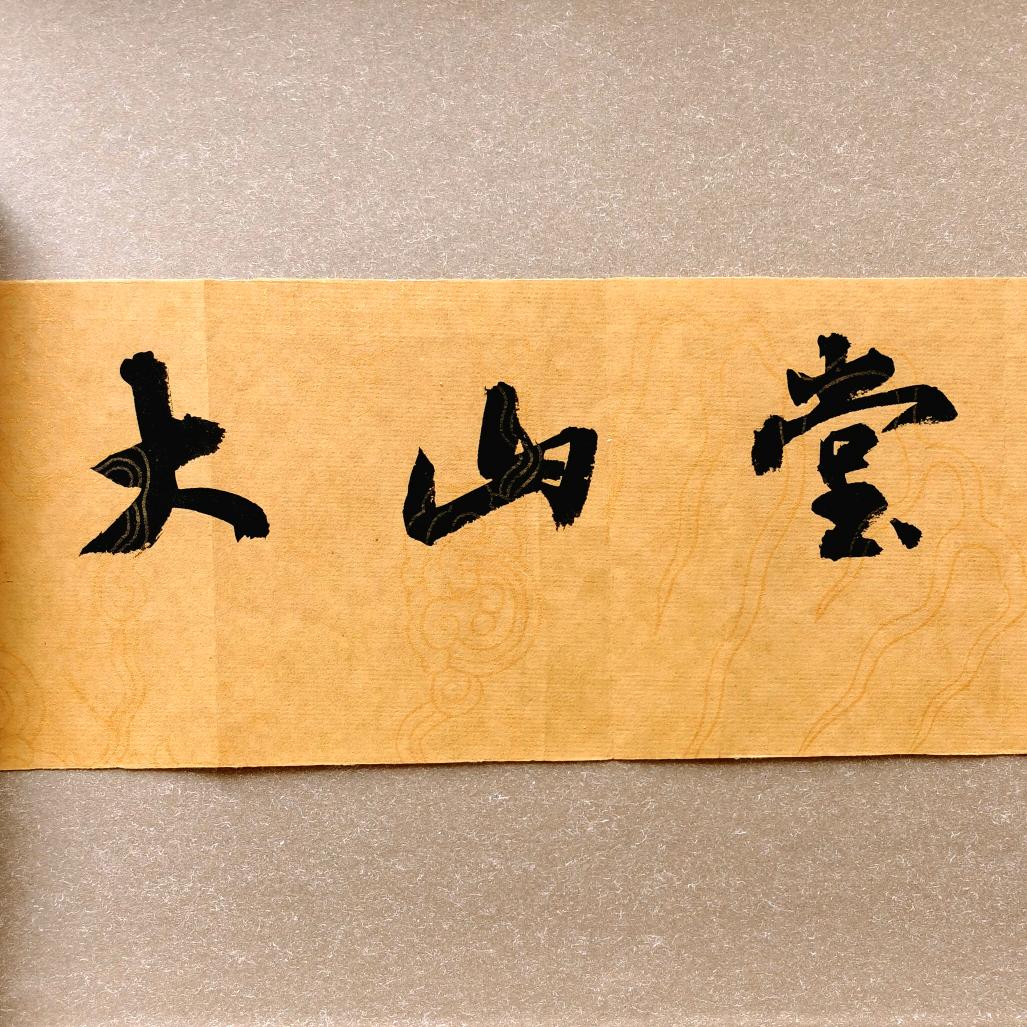 大山堂